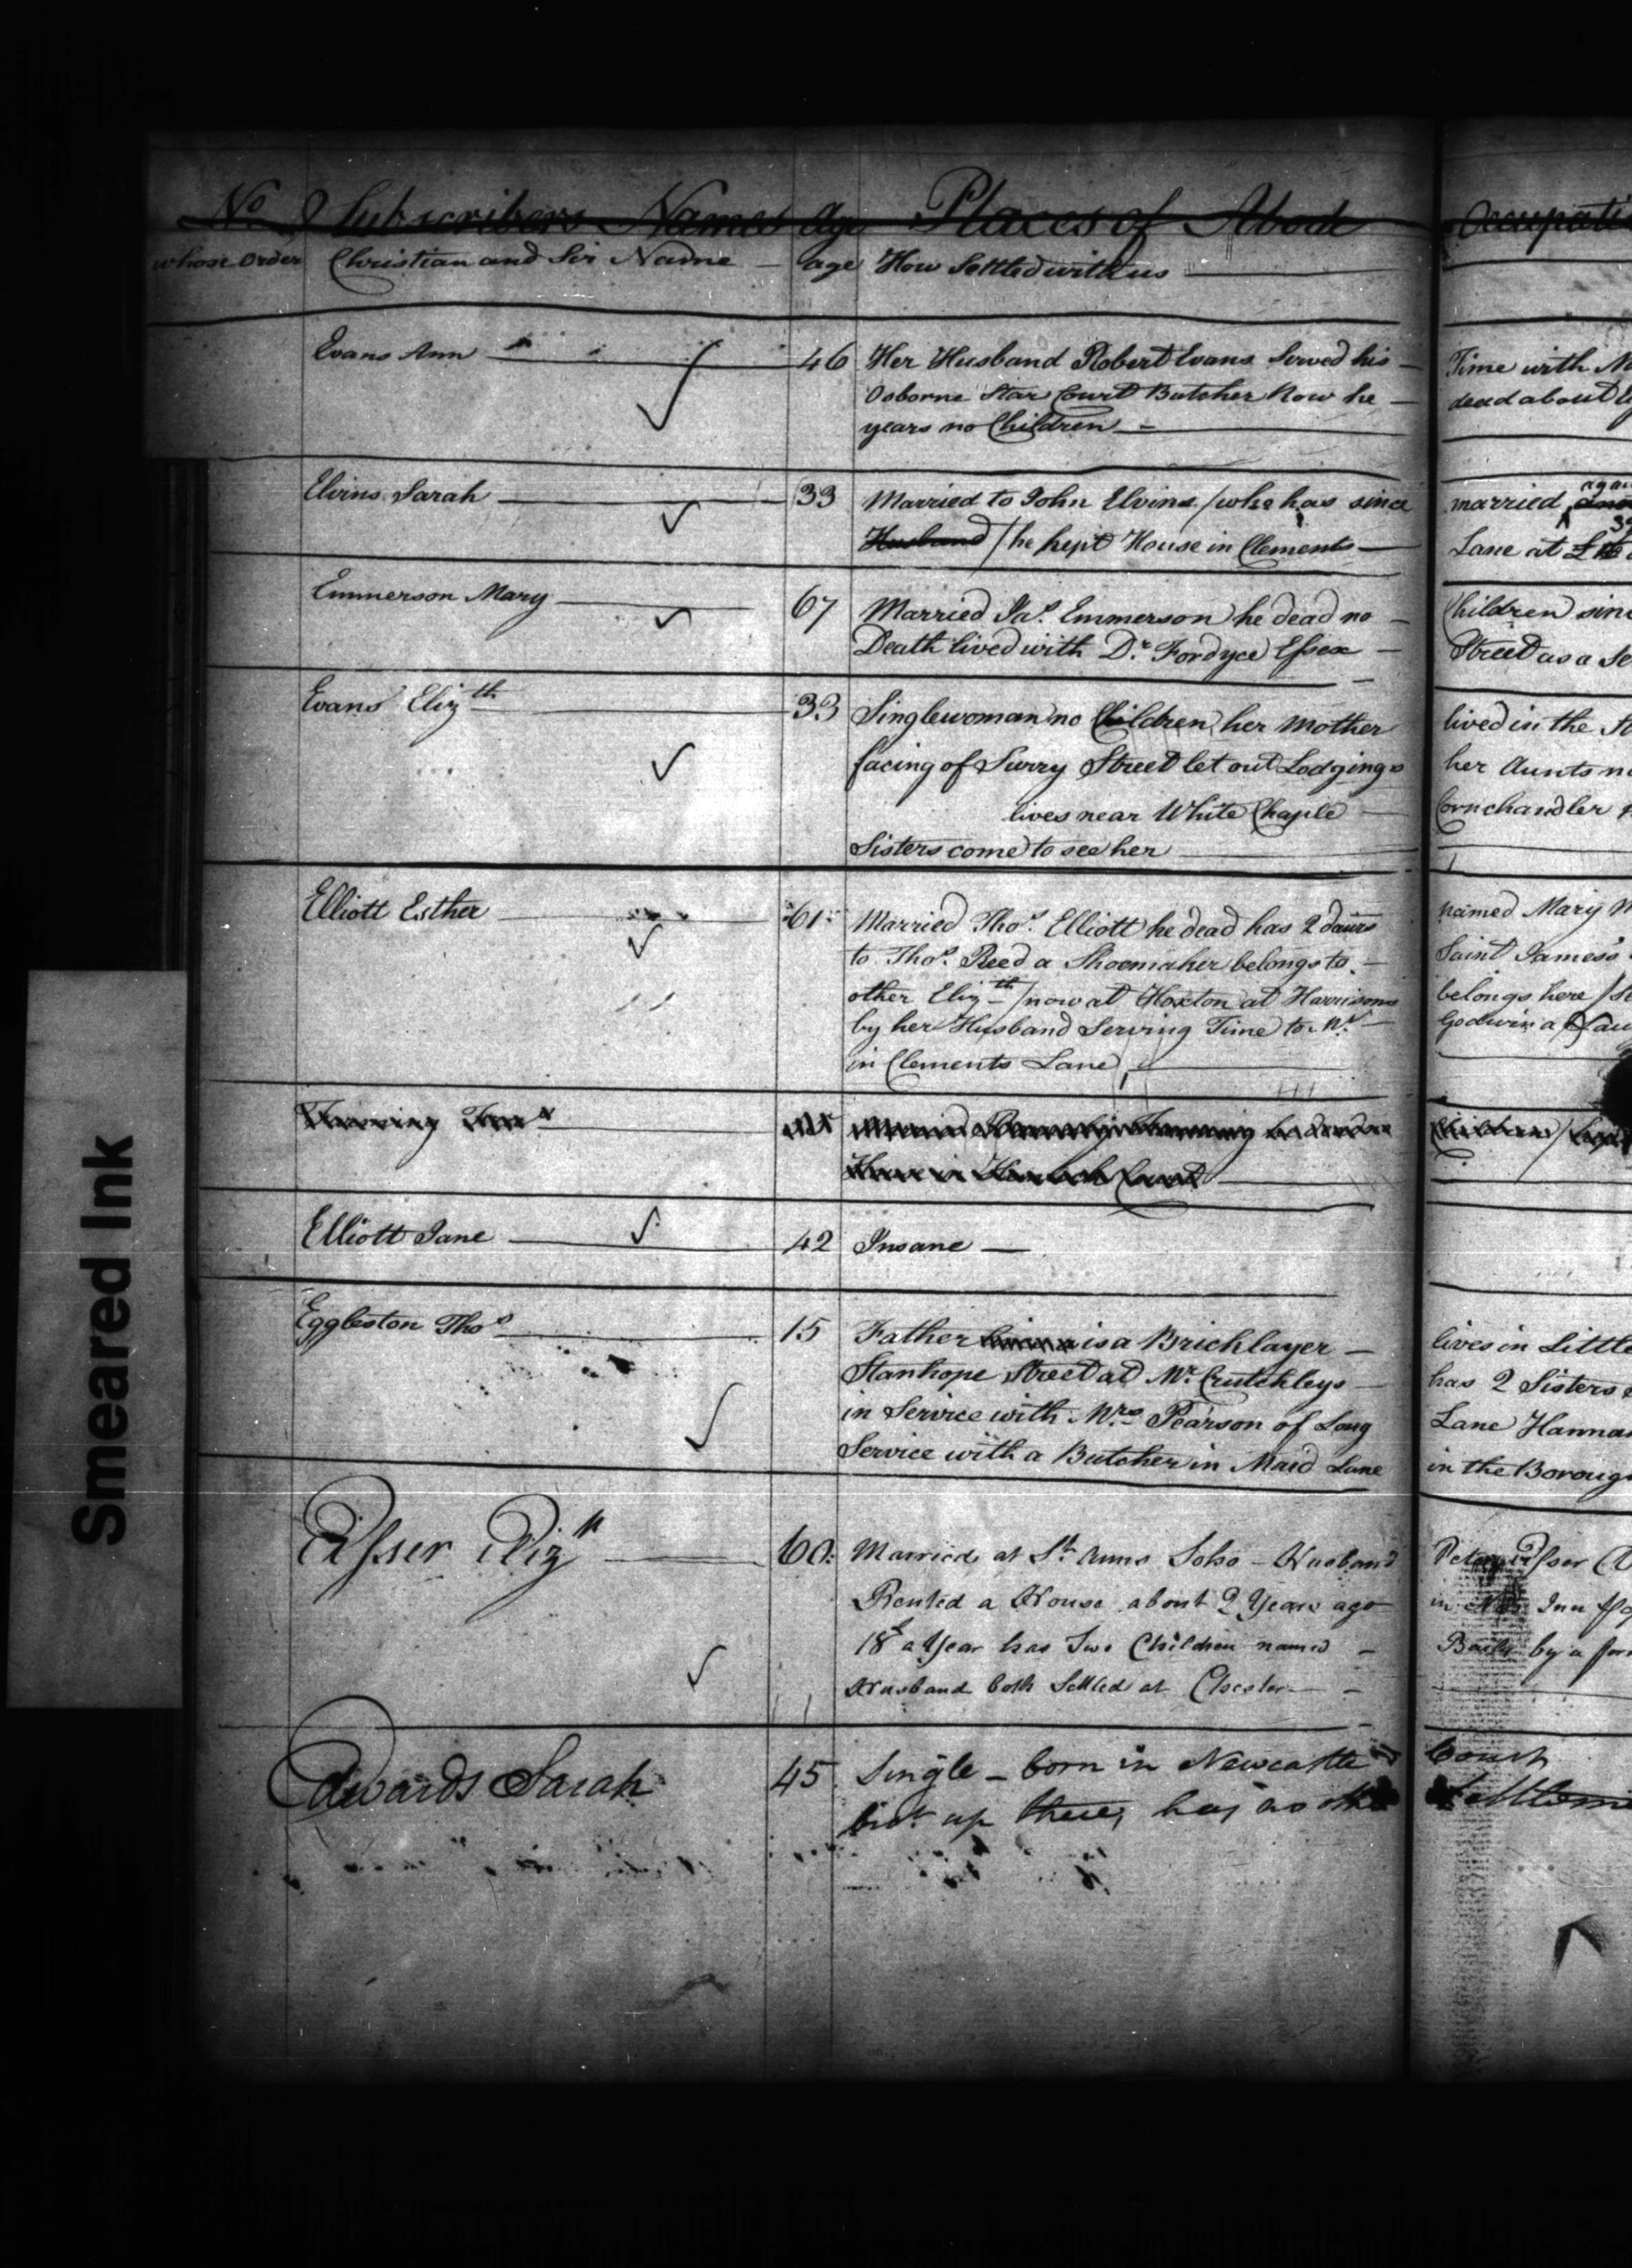 No Subscribers Names Age Places of Abode Occupati
whose Order Christian and Sir Name age How Settled with us
Evans Ann 46 Her Husband Robert Evans Served his Time with
Osborne Star Court Butcher Now he dead about
years no Children
Elvins Sarah 33 Married to John Elvins /who has since married again
Husband /he kept House in Clements Lane at
Emmerson Mary 67 Married Jas. Emmerson he dead no Children sinc
Death lived with Dr. Fordyce Essex Street as a Se
Evans Elizth 33 Singlewoman no Children her Mother lived in the
facing of Surry Street let out Lodgings her Aunts
lives near White Chaple Cornchandler
Sisters come to see her
Elliott Esther 61 Married Thos. Elliott he dead has 2 daurs named Mary
to Thos. Reed a Shoemaker belongs to Saint James's
other Elizth /now at Hoxton at Harrisons belongs here /
by her Husband Serving Time to Mr Godwin a
in Clements Lane
Elliott Jane 42 Insane
Eggleston Thos 15 Father is a Bricklayer lives in Little
Stanhope Street at Mr. Crutchleys has 2 Sisters
in Service with Mrs Pearson of Long Lane Hanna
Service with a Butcher in Maid Lane in the Boroug
Eisser Elizh 60 Married at St Anns Soho - Husband Peter Eisser
Rented a House about 2 Years ago in Inn
18£ a Year has Two Children named by a
Husband both Settled at Chester
Edwards Sarah 45 Single - born in Newcastle Court
bro't up there, has no othe Settleme
Smeared Ink